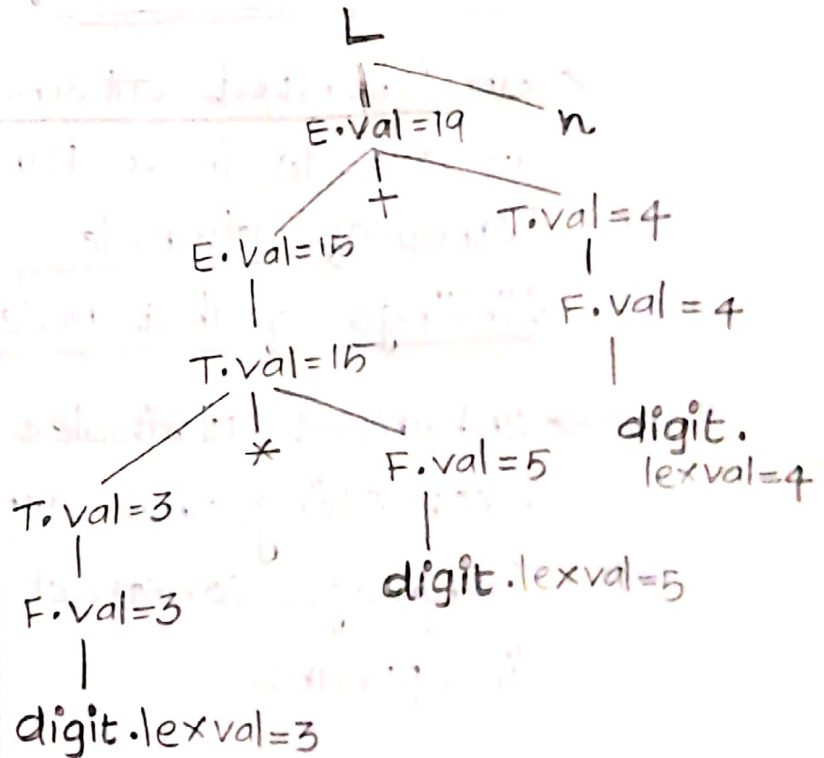 L
E.val=19 n
+
E.val=15 T.val=4
F.val=4
T.val=15
*
F.val=5 digit.
lexval=4
T.val=3
digit.lexval=5
F.val=3
digit.lexval=3